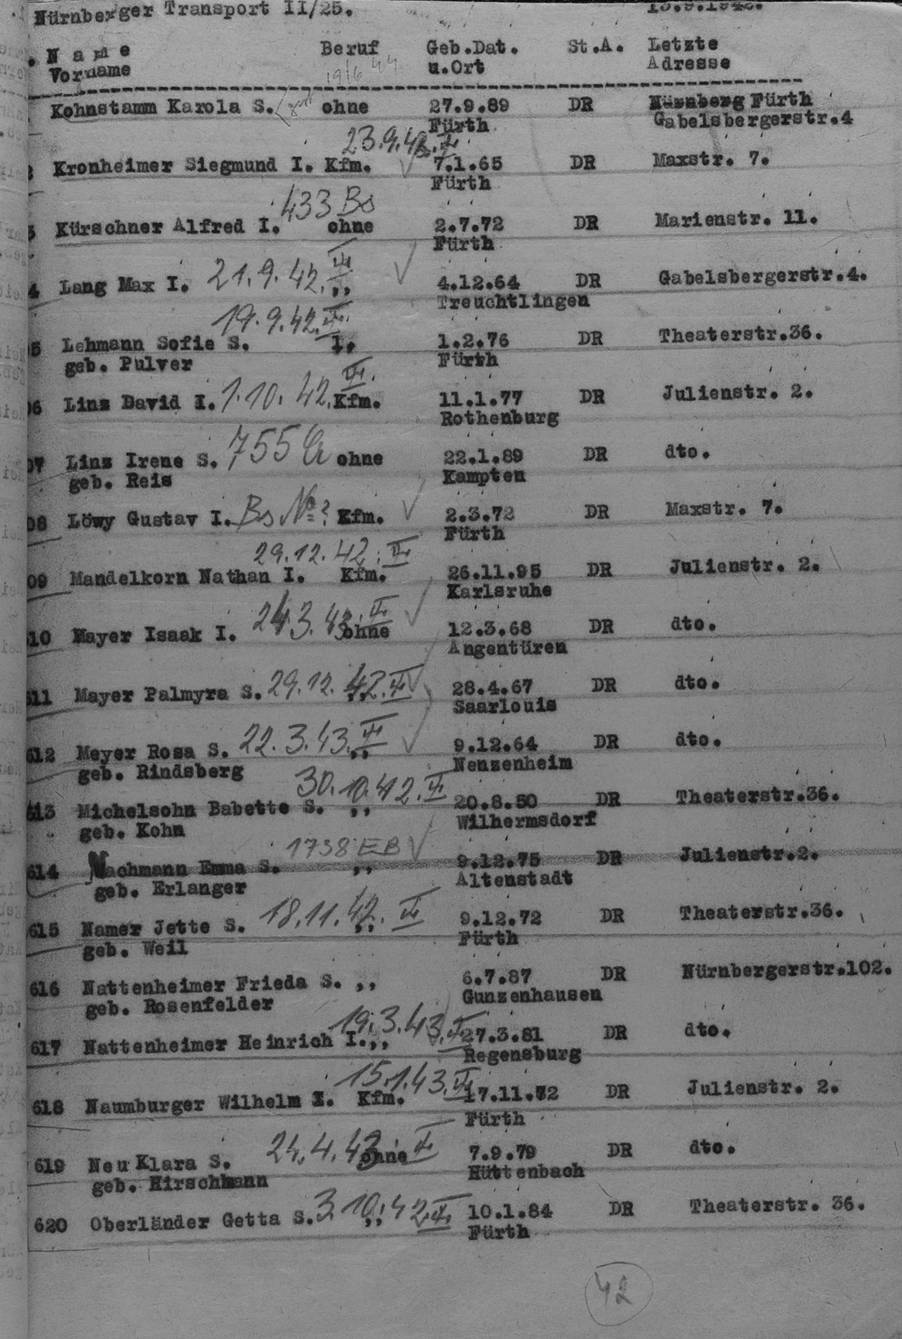 Nürnberger Transport II/25.
Name Beruf Geb.Dat. St.A. Letzte
Vorname u.Ort Adresse
Kohnstamm Karola S. ohne 27.9.89 DR Nürnberg Fürth
Fürth Gabelsbergerstr.4
23.9.42
Kronheimer Siegmund I. Kfm. 7.1.65 DR Maxstr. 7.
Fürth
433 Bs
Kürschner Alfred I. ohne 2.7.72 DR Marienstr. 11.
Fürth
4 Lang Max I. 21.9.42. ,, 4.12.64 DR Gabelsbergerstr.4.
Treuchtlingen
19.9.42.
5 Lehmann Sofie S. 1.2.76 DR Theaterstr.36.
geb. Pulver Fürth
06 Linz David I. 1.10.42. Kfm. 11.1.77 DR Julienstr. 2.
Rothenburg
07 Linz Irene S. 755 ohne 22.1.89 DR dto.
geb. Reis Kempten
08 Löwy Gustav I. Bs No ? Kfm. 2.3.72 DR Maxstr. 7.
Fürth
29.12.42.
09 Mandelkorn Nathan I. Kfm. 26.11.95 DR Julienstr. 2.
Karlsruhe
610 Mayer Isaak I. 24.3.43. ohne 12.3.68 DR dto.
Angentüren
611 Mayer Palmyra S. 29.12.42. ,, 28.4.67 DR dto.
Saarlouis
612 Meyer Rosa S. 22.3.43. ,, 9.12.64 DR dto.
geb. Rindsberg Nenzenheim
30.10.42.
613 Michelsohn Babette S. ,, 20.8.50 DR Theaterstr.36.
geb. Kohn Wilhermsdorf
1738 EB
614 Nachmann Emma S. ,, 9.12.75 DR Julienstr.2.
geb. Erlanger Altenstadt
615 Namer Jette S. 18.11.42. ,, 9.12.72 DR Theaterstr.36.
geb. Weil Fürth
616 Nattenheimer Frieda S. ,, 6.7.87 DR Nürnbergerstr.102.
geb. Rosenfelder Gunzenhausen
19.3.43.
617 Nattenheimer Heinrich I. ,, 27.3.81 DR dto.
Regensburg
15.1.43.
618 Naumburger Wilhelm I. Kfm. 17.11.72 DR Julienstr. 2.
Fürth
619 Neu Klara S. 24.4.43 ohne 7.9.79 DR dto.
geb. Hirschmann Hüttenbach
620 Oberländer Getta S. 3.10.42 ,, 10.1.84 DR Theaterstr. 36.
Fürth
42